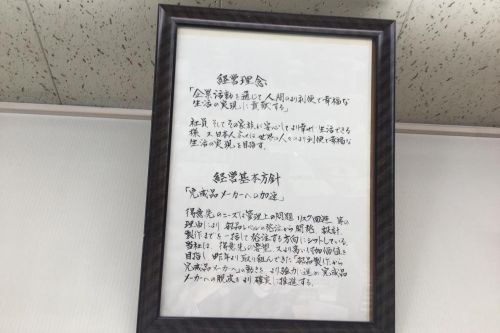 経営理念
「企業活動を通じて人間のより利便で幸福な
生活の実現」に貢献する。
社員そしてその家族に安心してより幸せに生活できる
様、又日本人ひいては世界の人々により利便で幸福な
生活の実現を目指す。
経営基本方針
「完成品メーカーへの加速」
得意先のニーズは管理上の問題、リスク回避、等の
理由により、部品レベルの発注から開発、設計、
製作までを一括して発注する方向にシフトしている。
当社は、得意先の要望、又より高い付加価値を
目指し、昨年より取り組んできた「部品製作から
完成品メーカーへの動きを、より強力に進め完成品
メーカーへの脱皮をより確実に推進する。